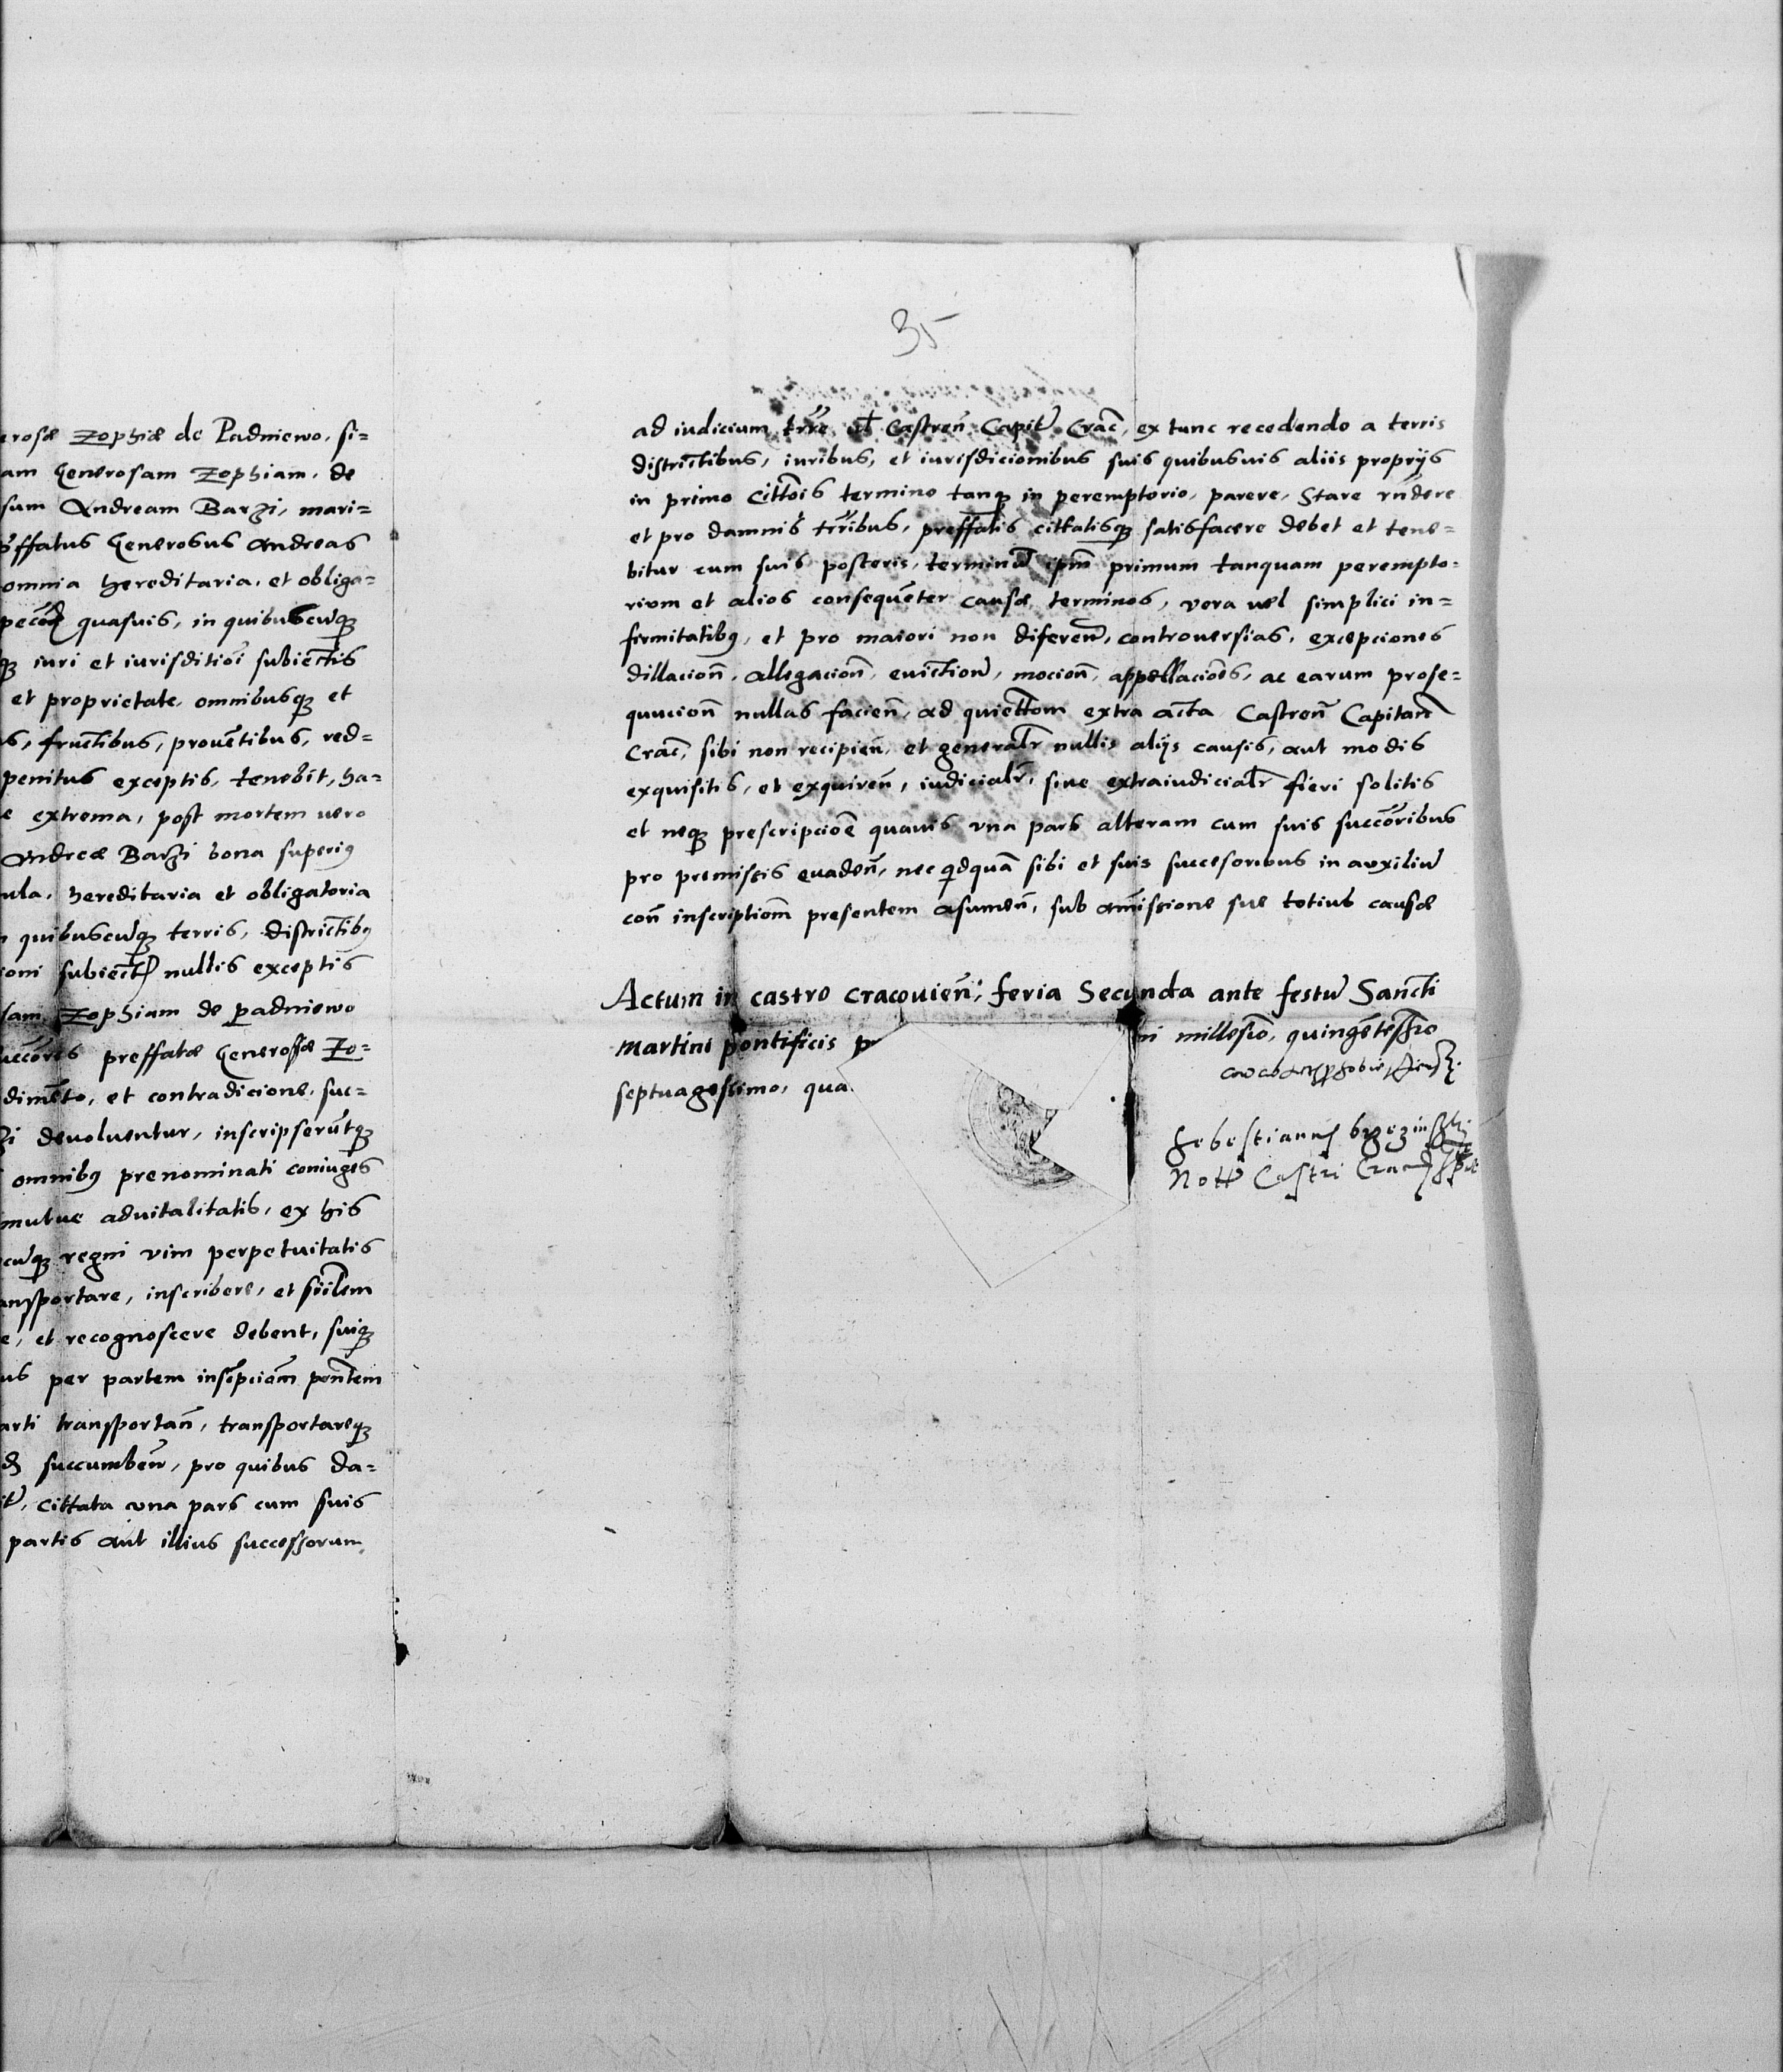 erosæ Zophiæ de Padniewo, si=
am Generosam Zophiam, de
sum Andream Barzi, mari=
p̃ffatus Generosus Andreas
omnia hereditaria, et obliga=
quasuis, in quibuscũqꝫ
qꝫ iuri et iurisditiõi subiectis
et proprietate, omnibusqꝫ et
s, fructibus, prouẽtibus, red=
penitus exceptis, tenebit, ha=
e extrema, post mortem uero
Andreæ Barzi bona superiꝰ
ula, hereditaria et obligatoria
quibuscũqꝫ terris, districtibꝰ
ioni subiect̃ nullis exceptis
sam Zophiam de Padniewo
uccõres preffatæ Generosæ Zo=
dimẽto, et contradicione, suc=
zi deuoluentur, inscripserũtqꝫ
omnibꝰ prenominati coniuges
mutue aduitalitatis, ex his
cũqꝫ regni vim perpetuitatis
ansportare, inscribere, et sĩilem
e, et recognoscere debent, suiqꝫ
us per partem insc̃pciõm pñtem
arti transportañ, transportareqꝫ
succumbeñ, pro quibus da=
it̃, cittata vna pars cum suis
partis aut illius successorum
35
ad iudicium trr̃e ut̃ Castreñ Capit̃ Crac̃, ex tunc recedendo a terris
districtibus, iuribus, et iurisdicionibus suis quibusuis aliis proprijs
in primo cittõis termino tanqꝫ in peremptorio, parere, stare rñdere
et pro damnis trr̃ibus, preffatis cittatisqꝫ satisfacere debet et tene=
bitur cum suis posteris, terminũ ipm̃ primum tanquam perempto=
rium et alios consequẽter causæ terminos, vera uel simplici in=
firmitatibꝰ, et pro maiori non difereñ, controuersias, excepciones
dillacioñ, allegacioñ, euictioñ, mocioñ, appellaciões, ac earum prose=
quucioñ nullas facieñ, ad quiettõm extra acta Castreñ Capitañ
Crac̃, sibi non recipieñ, et generalr̃ nullis alijs causis, aut modis
exquisitis, et exquireñ, iudicialr̃, siue extraiudicialr̃ fieri solitis
et neqꝫ prescripciõe quauis vna pars alteram cum suis succõribus
pro premissis euadeñ, nec qdquã sibi et suis succesoribus in auxiliũ
coñ inscriptiõm presentem asumeñ, sub amissione sue totius causæ
Actum in castro Cracouieñ, feria Secunda ante festũ Sancti
Martini pontificis pr ni millesiõ, quingẽtessio
septuagesimo, qua
Sebestianus brzezinski
Nott̃ Castri Crac̃